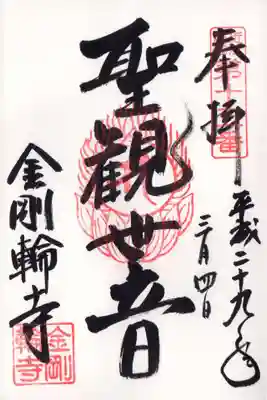 奉拝
平成二十九年
三月四日
聖観世音
金剛輪寺
金剛
輪寺